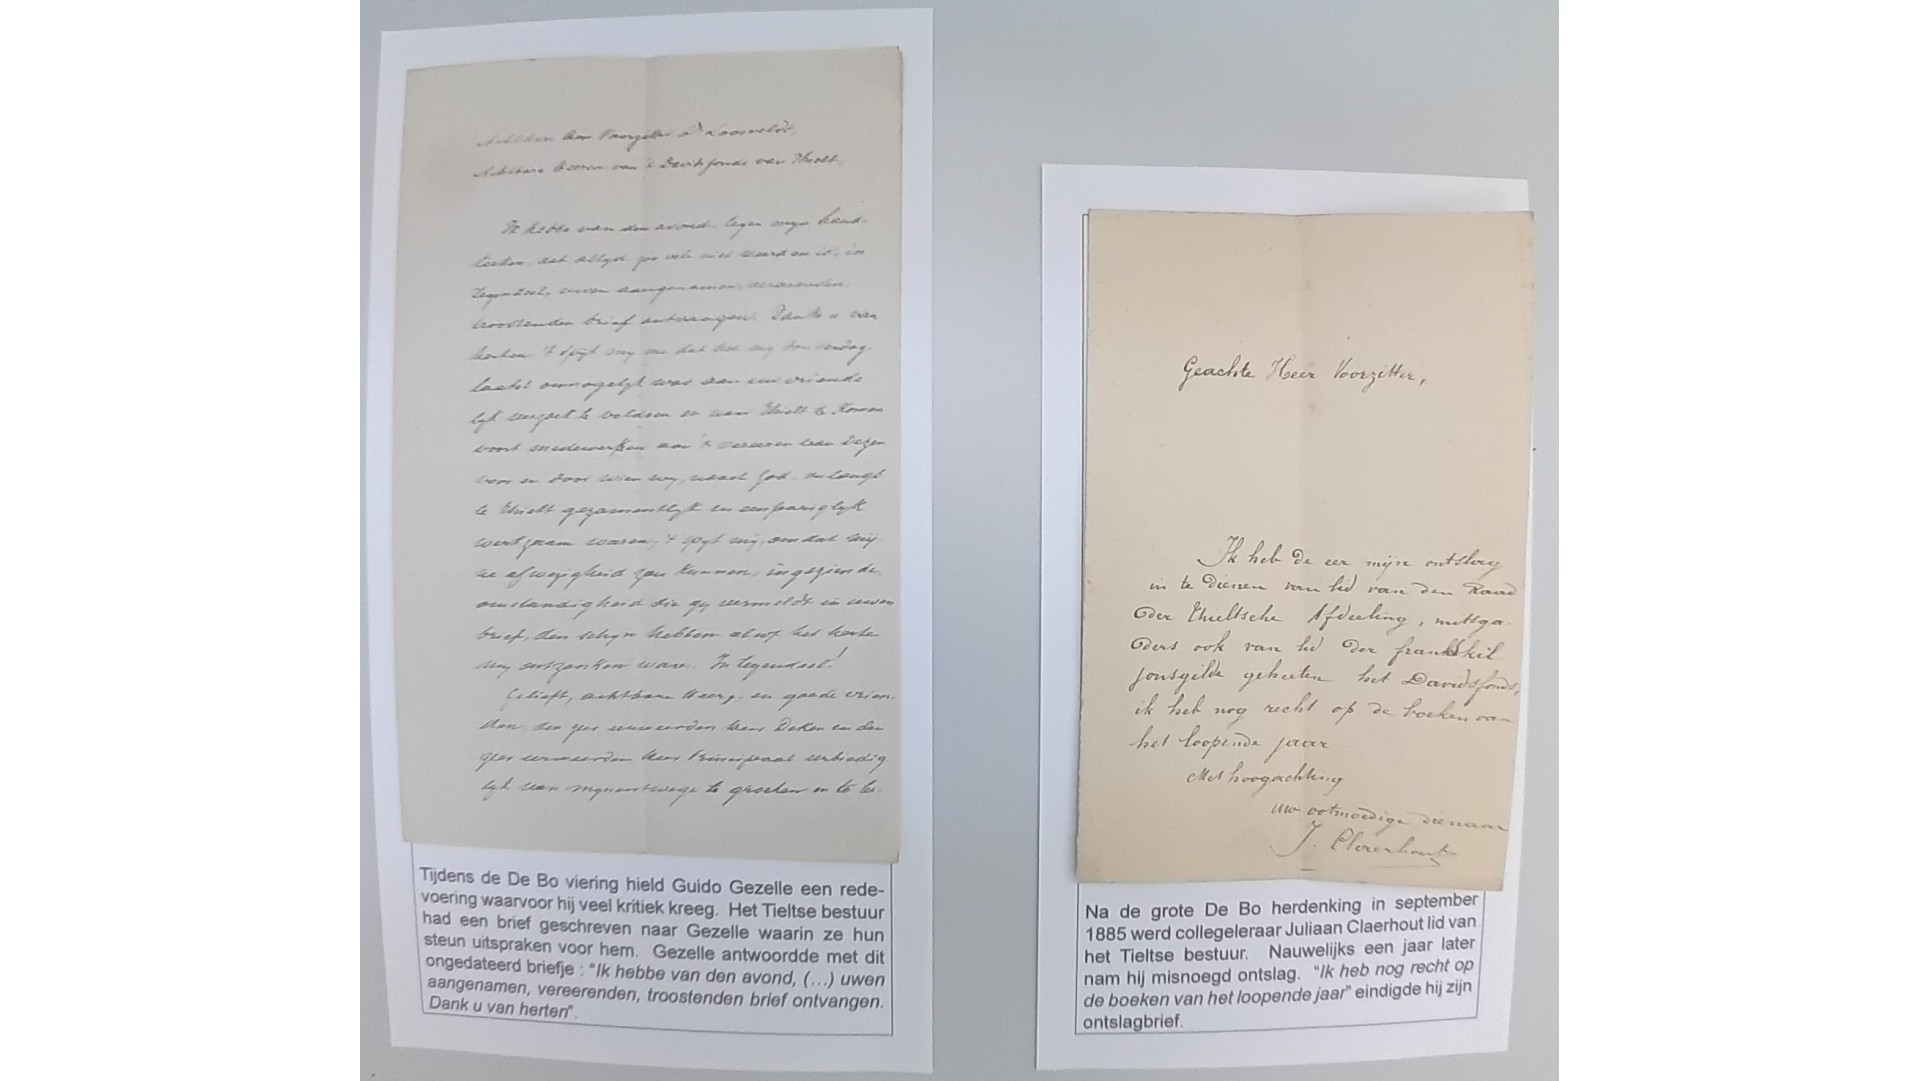 Achtbare Heer Voorzitter Dr Loosveldt,
Achtbare Heeren van 't Davidsfonds van Thielt,
Ik hebbe van den avond, tegen mijn hand-
teeken, dat altijd zoo vele niet weerd en is, in
tegendeel, uwen aangenamen, vereerenden,
troostenden brief ontvangen. Dank u van
herten. 't Spijt mij dat het mij den
laatst onmogelijk was aan uw vriende
lijk verzoek te voldoen en naar Thielt te komen
voort medewerken aan 't vereeren van Dezen
voor en door wien wij, naast God, onlangs
te Thielt gezamentlijk en eenpariglijk
werkzaam waren; 't spijt mij, omdat mij-
ne afwezigheid zou kunnen, ingezien de
omstandigheid die gij vermeldt in uwen
brief, den schijn hebben alsof het herte
mij ontzonken ware. In tegendeel!
Gelieft, achtbare Heeren en goede vrien-
den, den zeer eerweerden heer Deken en den
zeer eerweerden Heer Principaal eerbiedig
lijk van mijnentwege te groeten en te be-
Tijdens de De Bo viering hield Guido Gezelle een rede-
voering waarvoor hij veel kritiek kreeg. Het Tieltse bestuur
had een brief geschreven naar Gezelle waarin ze hun
steun uitspraken voor hem. Gezelle antwoordde met dit
ongedateerd briefje : “Ik hebbe van den avond, (…) uwen
aangenamen, vereerenden, troostenden brief ontvangen.
Dank u van herten”.
Geachte Heer Voorzitter,
Ik heb de eer mijn ontslag
in te dienen van lid van den Raad
der Thieltsche Afdeeling, mitsga-
ders ook van lid der
jonsgilde geheeten het Davidsfonds,
ik heb nog recht op de boeken van
het loopende jaar
Met hoogachting
uw ootmoedige dienaar
J. Claerhout
Na de grote De Bo herdenking in september
1885 werd collegeleraar Juliaan Claerhout lid van
het Tieltse bestuur. Nauwelijks een jaar later
nam hij misnoegd ontslag. “Ik heb nog recht op
de boeken van het loopende jaar” eindigde hij zijn
ontslagbrief.